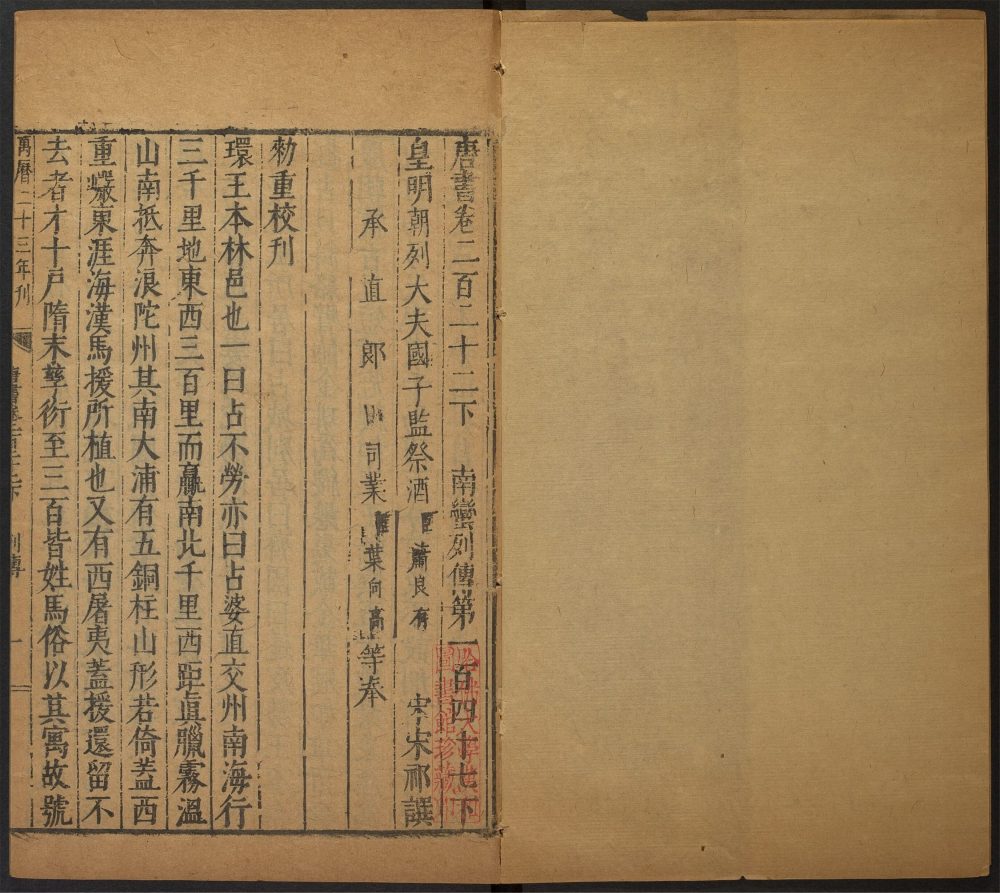 唐書卷二百二十二下　南蠻列傳第一百四十七下
皇明朝列大夫國子監祭酒　蕭良有　宋宋祁譔
承直郎　司業　葉向高　等奉
勑重校刊
環王本林邑也一曰占不勞亦曰占婆直交州南海行
三千里地東西三百里而贏南北千里西距真臘霧溫
山南抵奔浪陀州其南大浦有五銅柱山形若倚蓋西
重巖東涯海漢馬援所植也又有西屠夷蓋援還留不
去者才十戶隋末孳衍至三百皆姓馬俗以其寓故號
萬曆二十三年刊
唐書卷二百二十二下　列傳　一
圖書館珍藏印